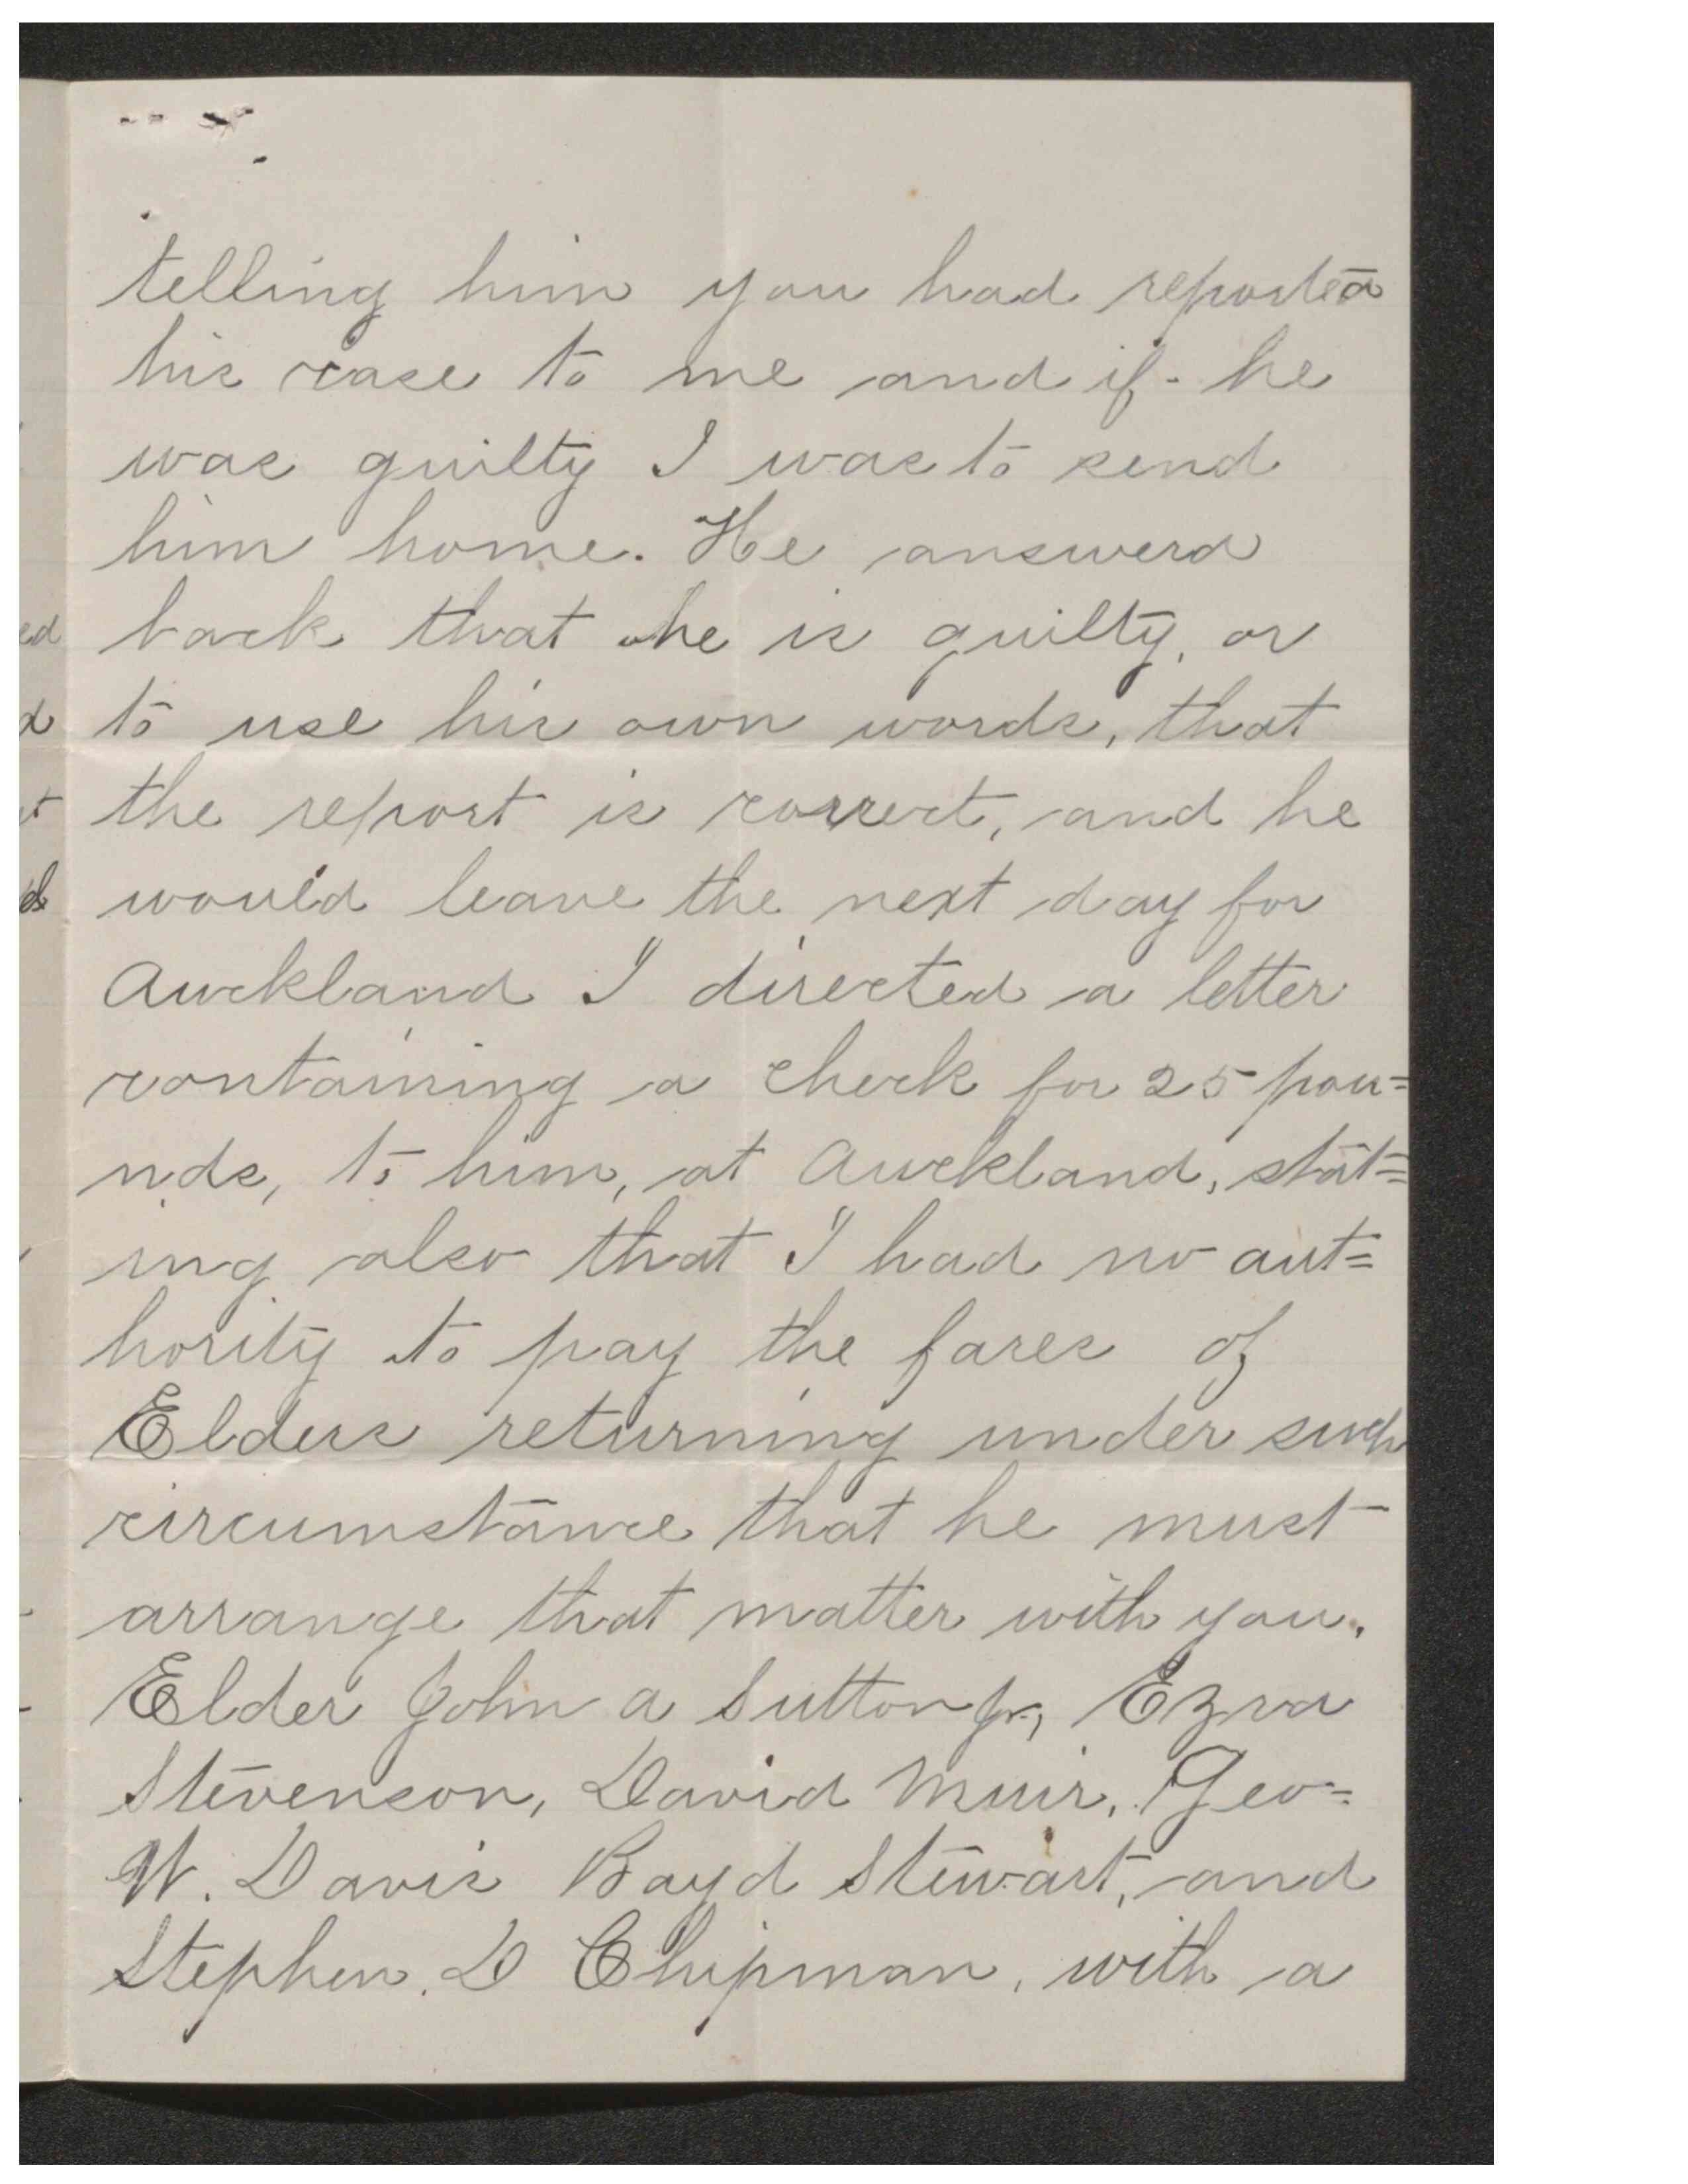 telling him you had reported
his case to me and if he
was guilty I was to send
him home. He answerd
ed back that he is guilty, or
d to use his own words, that
t the report is correct, and he
would leave the next day for
Auckland I directed a letter
containing a check for 25 pou=
nds, to him, at Auckland, stat=
ing also that I had no aut=
hority to pay the fares of
Elders returning under such
circumstance that he must
arrange that matter with you.
Elder John A Sutton Jr, Ezra
Stevenson, David Muir, Geo=
W. Davis Boyd Stewart, and
Stephen. D Chipman, with a